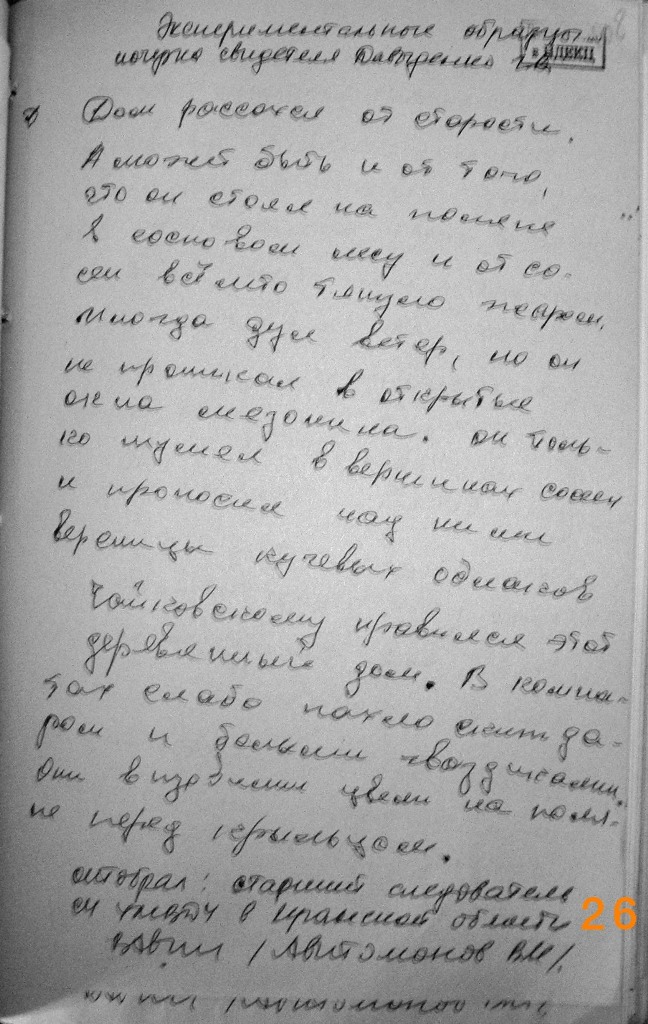 Экспериментальные образцы
почерка свидетеля Давыденко
в ЦДЕКЦ
Дом рассохся от старости.
А может быть и от того,
что он стоял на поляне
в сосновом лесу и от со-
сен всё лето тянуло жаром.
Иногда дул ветер, но он
не проникал в открытые
окна мезонина. он толь-
ко шумел в вершинах сосен
и проносил над ними
вереницы кучевых облаков
Чайковскому нравился этот
деревянный дом. В комна-
тах слабо пахло скипида-
ром и белыми гвоздиками.
Они в изобилии цвели на поля-
не перед крыльцом.
отобрал: старший следователь
в области
/Автомонов ВМ/.
26